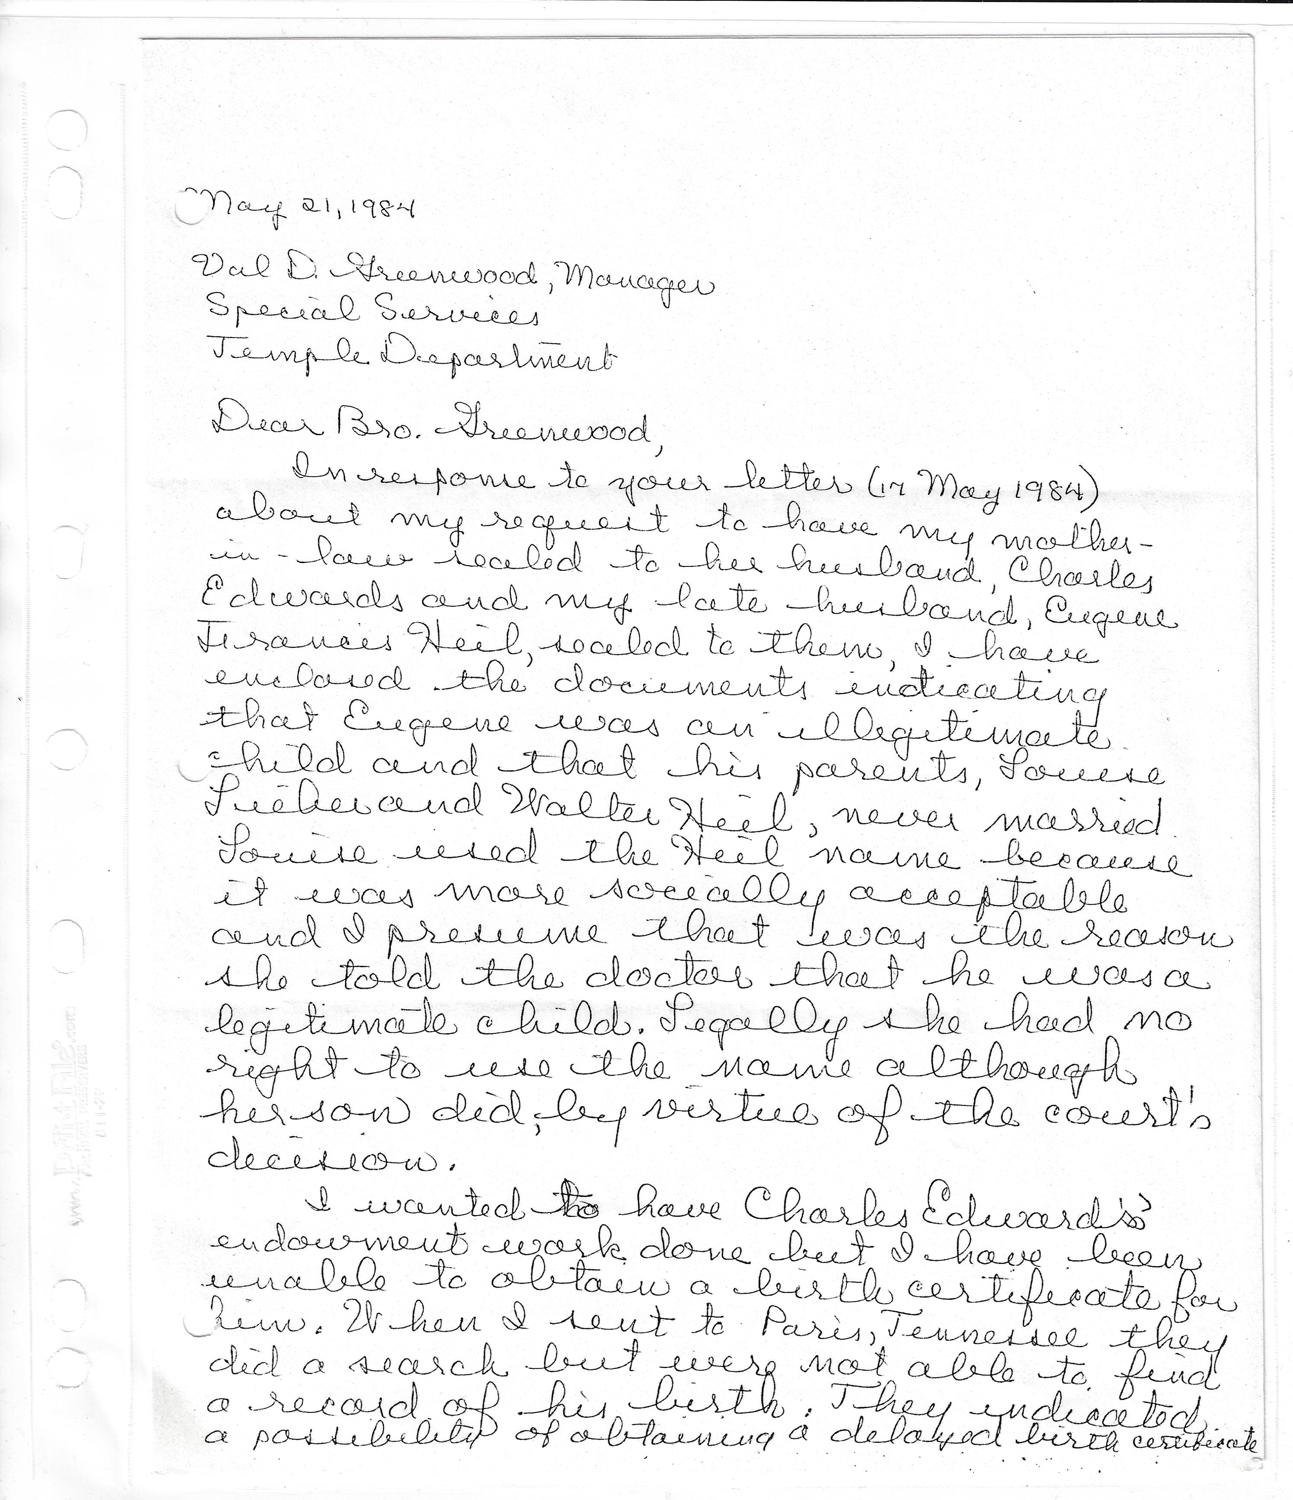 May 21, 1984
Val D. Greenwood, Manager
Special Services
Temple Department
Dear Bro. Greenwood,
In response to your letter (17 May 1984)
about my request to have my mother-
in-law sealed to her husband, Charles
Edwards and my late husband, Eugene
Francis Heil, sealed to them, I have
enclosed the documents indicating
that Eugene was an illegitimate
child and that his parents, Louise
and Walter Heil, never married.
Louise used the Heil name because
it was more socially acceptable
and I presume that was the reason
she told the doctor that he was a
legitimate child. Legally she had no
right to use the name although
her son did, by virtue of the court's
decision.
I wanted to have Charles Edwards'
endowment work done but I have been
unable to obtain a birth certificate for
him. When I sent to Paris, Tennessee they
did a search but were not able to find
a record of his birth. They indicated
a possibility of obtaining a delayed birth certificate